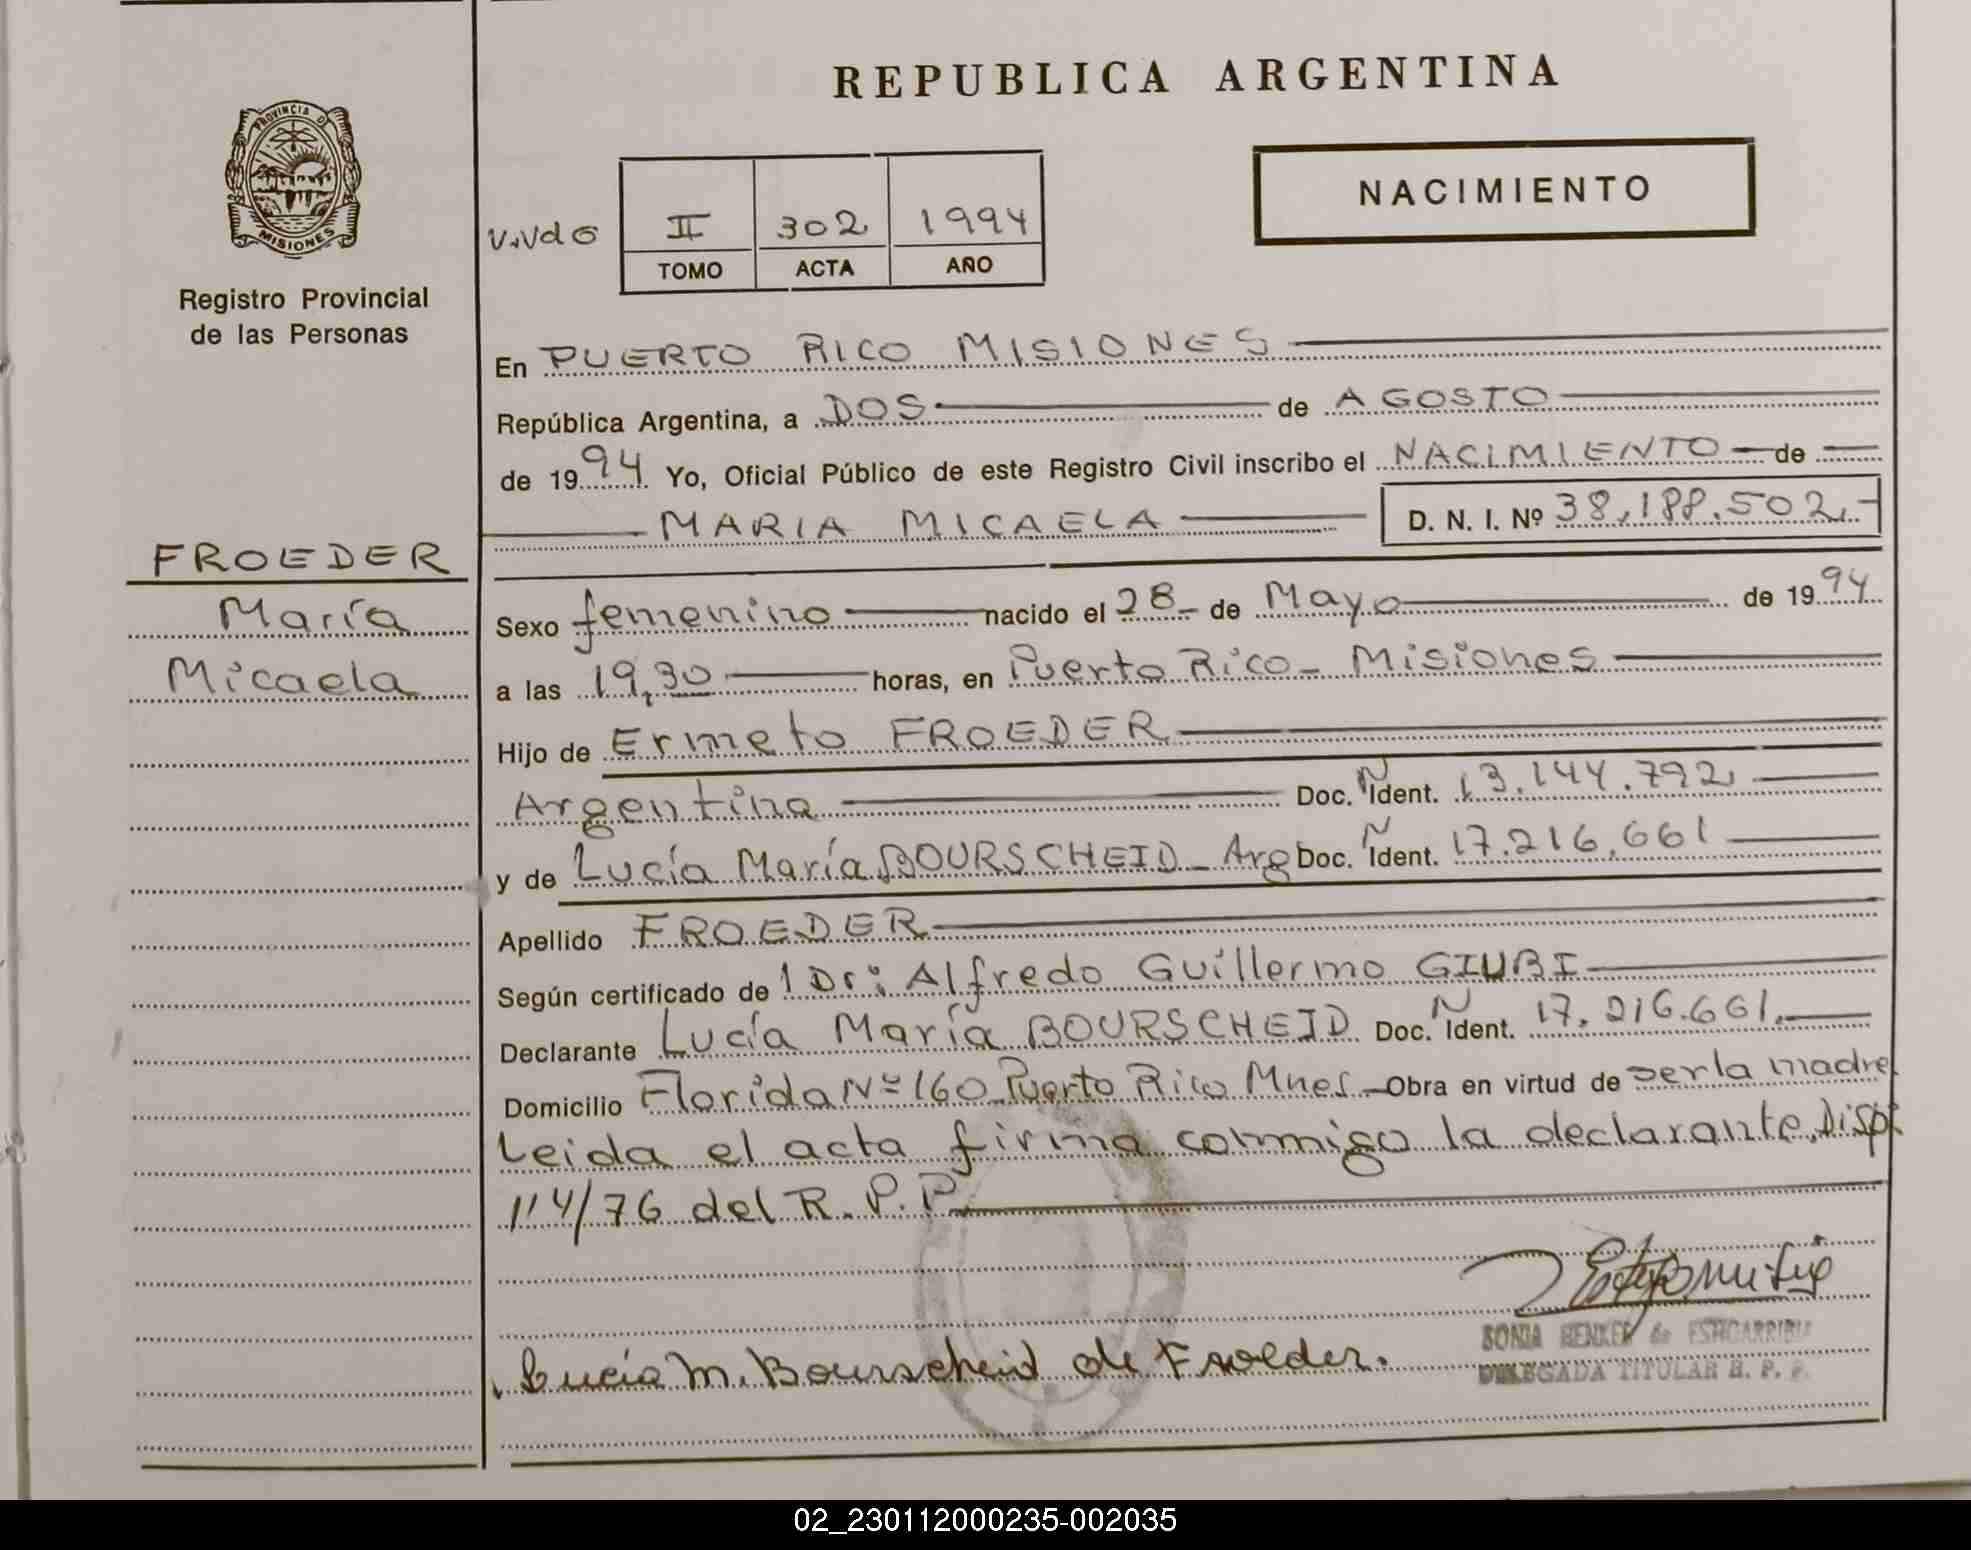 REPUBLICA ARGENTINA
PROVINCIA DE
MISIONES
Registro Provincial
de las Personas
NACIMIENTO
II 302 1994
TOMO ACTA AÑO
En PUERTO RICO MISIONES
República Argentina, a DOS de AGOSTO
de 1994 Yo, Oficial Público de este Registro Civil inscribo el NACIMIENTO de
MARIA MICAELA D. N. I. Nº 38.188.502.-
FROEDER
María
Micaela
Sexo femenino nacido el 28 de Mayo de 1994
a las 19,30 horas, en Puerto Rico - Misiones
Hijo de Ermeto FROEDER
Argentina Doc. N Ident. 13.144.792
y de Lucía María BOURSCHEID - Arg Doc. N Ident. 17.216.661
Apellido FROEDER
Según certificado de l Dr: Alfredo Guillermo GIUBI
Declarante Lucía María BOURSCHEID Doc. N Ident. 17.216.661.
Domicilio Florida Nº 160 Puerto Rico Mnes. Obra en virtud de ser la madre
Leida el acta firma conmigo la declarante. Disp.
114/76 del R. P. P.
Lucía M. Bourscheid de Froeder.
SONIA BENKER de
DELEGADA TITULAR R. P. P.
02_230112000235-002035